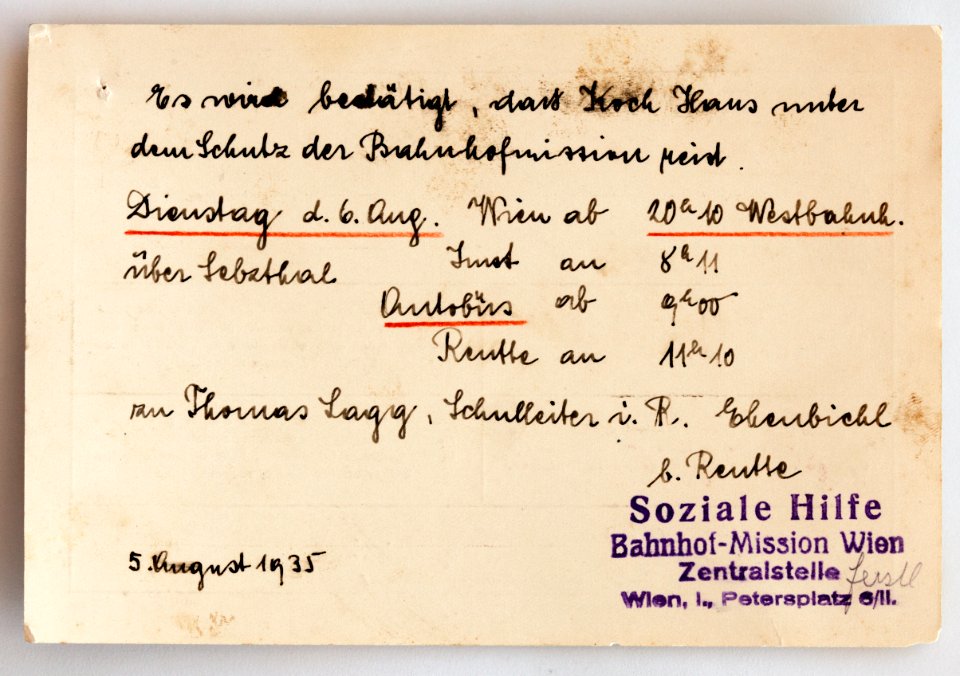 Es wird bestätigt, dass Koch Hans unter
dem Schutz der Bahnhofmission reist.
Dienstag d. 6. Aug. Wien ab 20h10 Westbahnh.
über Selzthal Imst an 8h11
Autobus ab 9h00
Reutte an 11h10
zu Thomas Sagg, Schulleiter i. R. Ehenbichl
b. Reutte
Soziale Hilfe
Bahnhof-Mission Wien
Zentralstelle
Wien, I., Petersplatz 6/II.
5. August 1935